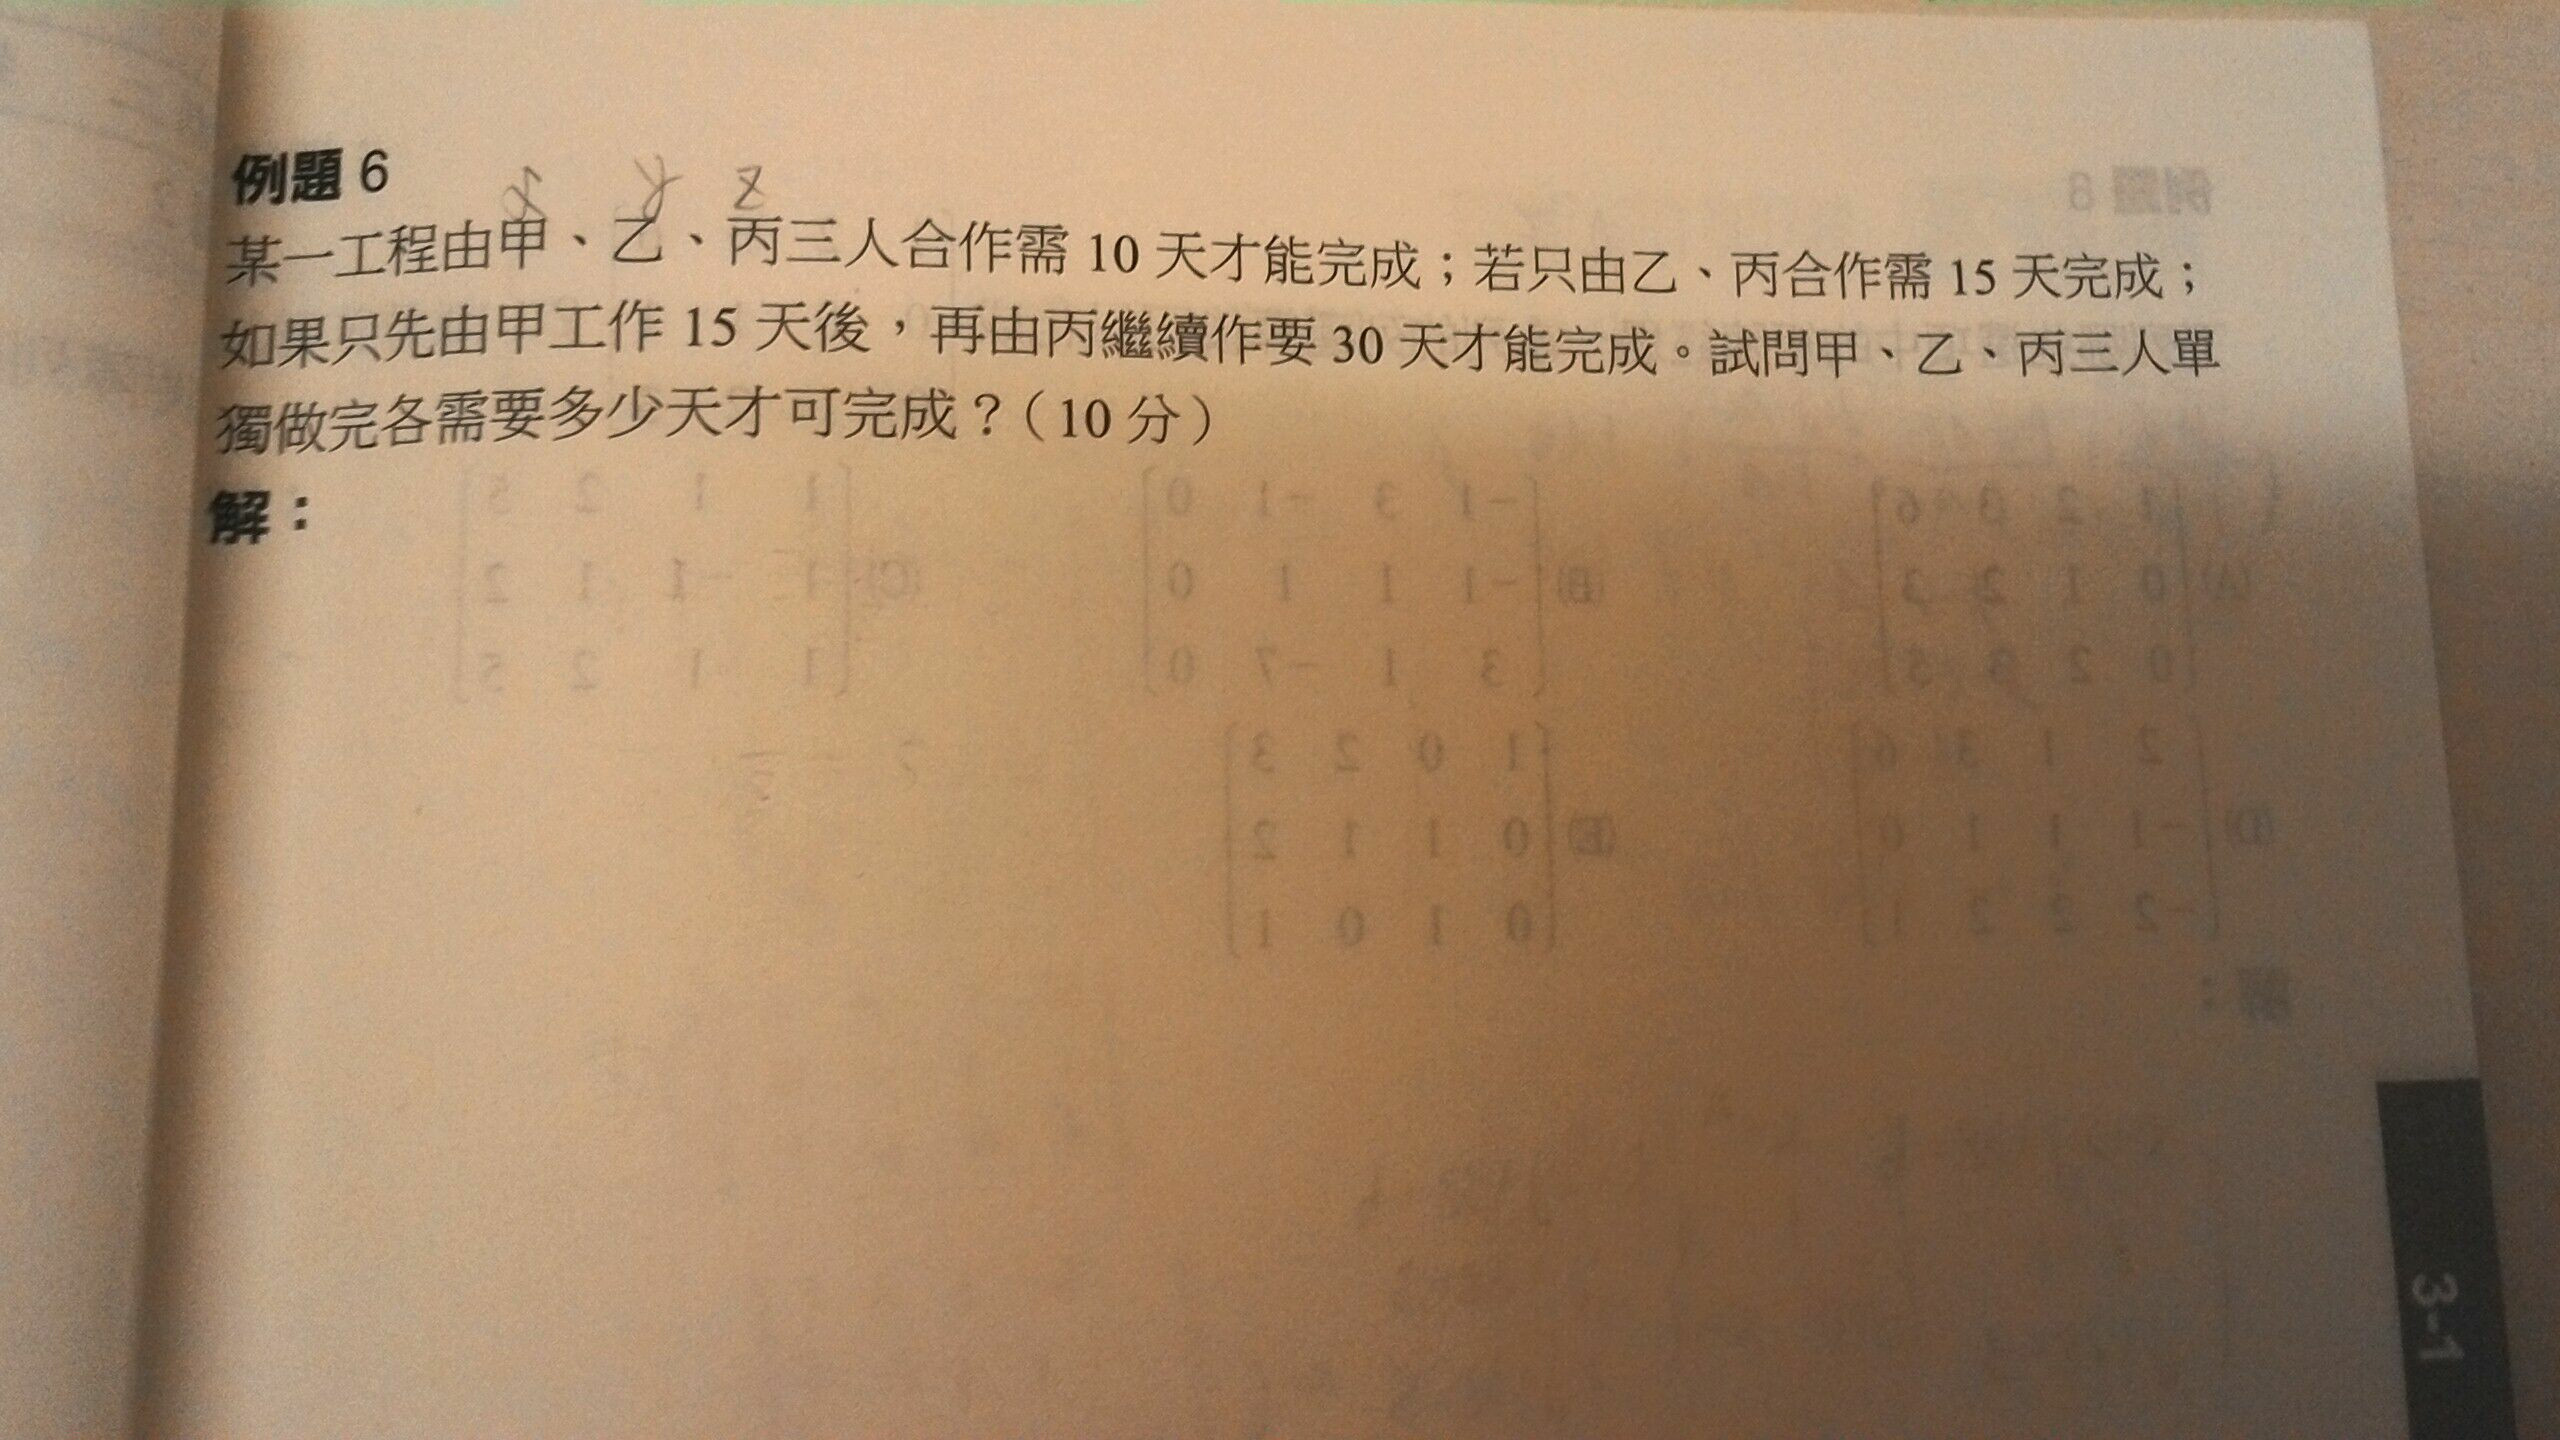 例題 6
x y z
某一工程由甲、乙、丙三人合作需 10 天才能完成；若只由乙、丙合作需 15 天完成；
如果只先由甲工作 15 天後，再由丙繼續作要 30 天才能完成。試問甲、乙、丙三人單
獨做完各需要多少天才可完成？（10 分）
解：
3-1